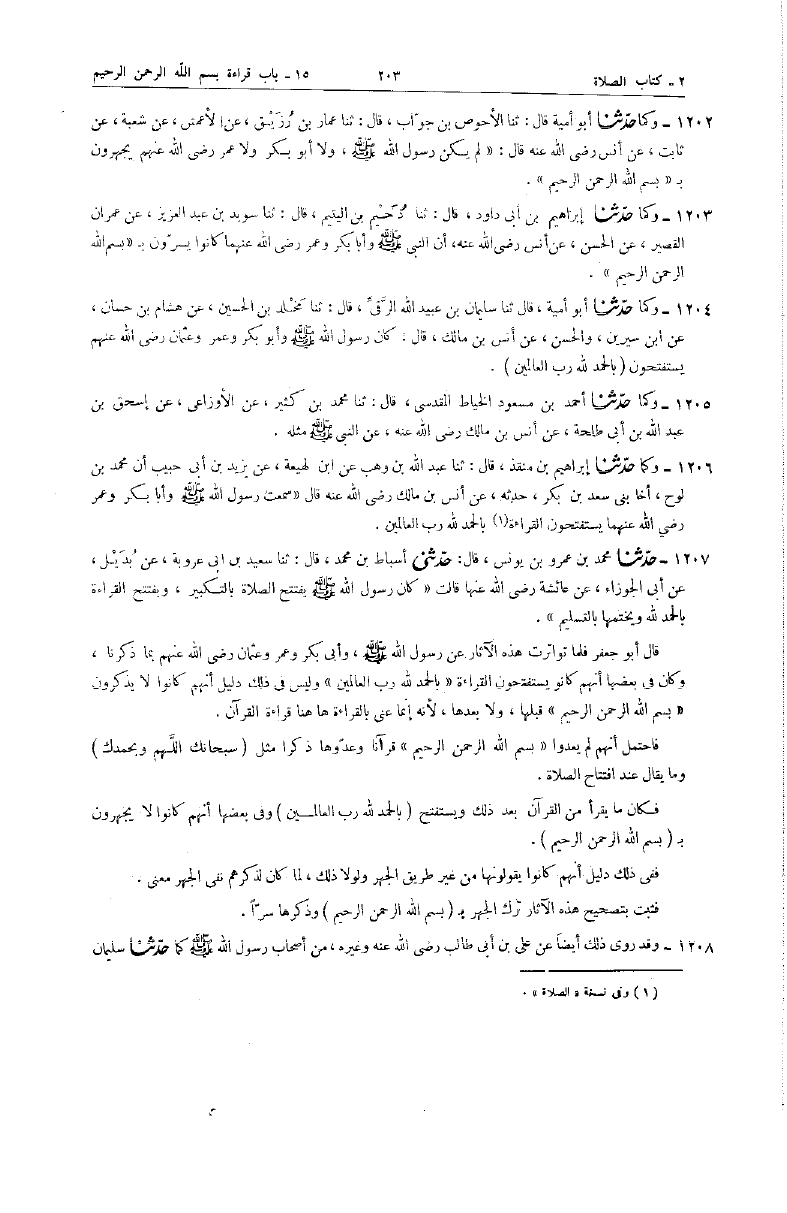 ٢ - كتاب الصلاة ٢٠٣ ١٥ - باب قراءة بسم الله الرحمن الرحيم
١٢٠٢ - وكما حدّثنا أبو أمية قال : ثنا الأحوص بن جوّاب ، قال : ثنا عمار بن رُزَيْق ، عن الأعمش ، عن شعبة ، عن
ثابت ، عن أنس رضى الله عنه قال : « لم يكن رسول الله ﷺ ، ولا أبو بكر ولا عمر رضى الله عنهم يجهرون
بـ « بسم الله الرحمن الرحيم » .
١٢٠٣ - وكما حدّثنا إبراهيم بن أبى داود ، قال : ثنا دُحَيْم بن اليتيم ، قال : ثنا سويد بن عبد العزيز ، عن عمران
القصير ، عن الحسن ، عن أنس رضى الله عنه، أن النبى ﷺ وأبا بكر وعمر رضى الله عنهما كانوا يسرّون بـ «بسم الله
الرحمن الرحيم » .
١٢٠٤ - وكما حدّثنا أبو أمية ، قال ثنا سليمان بن عبيد الله الرَّقىّ ، قال : ثنا مَخْلَد بن الحسين ، عن هشام بن حسان ،
عن ابن سيرين ، والحسن ، عن أنس بن مالك ، قال : كان رسول الله ﷺ وأبو بكر وعمر وعثمان رضى الله عنهم
يستفتحون ( بالحمد لله رب العالمين ) .
١٢٠٥ - وكما حدّثنا أحمد بن مسعود الخياط المقدسى ، قال : ثنا محمد بن كثير ، عن الأوزاعى ، عن إسحق بن
عبد الله بن أبى طلحة ، عن أنس بن مالك رضى الله عنه ، عن النبى ﷺ مثله .
١٢٠٦ - وكما حدّثنا إبراهيم بن منقذ ، قال : ثنا عبد الله بن وهب عن ابن لهيعة ، عن يزيد بن أبى حبيب أن محمد بن
نوح ، أخا بنى سعد بن بكر ، حدثه ، عن أنس بن مالك رضى الله عنه قال «سمعت رسول الله ﷺ وأبا بكر وعمر
رضى الله عنهما يستفتحون القراءة(١) بالحمد لله رب العالمين .
١٢٠٧ - حدّثنا محمد بن عمرو بن يونس ، قال: حدّثنى أسباط بن محمد ، قال : ثنا سعيد بن ابى عروبة ، عن بُدَيْل ،
عن أبى الجوزاء ، عن عائشة رضى الله عنها قالت « كان رسول الله ﷺ يفتتح الصلاة بالتكبير ، ويفتتح القراءة
بالحمد لله ويختمها بالتسليم » .
قال أبو جعفر فلما تواترت هذه الآثار عن رسول الله ﷺ ، وأبى بكر وعمر وعثمان رضى الله عنهم بما ذكرنا ،
وكان فى بعضها أنهم كانو يستفتحون القراءة « بالحمد لله رب العالمين » وليس فى ذلك دليل أنهم كانوا لا يذكرون
« بسم الله الرحمن الرحيم » قبلها ، ولا بعدها ، لأنه إنما عنى بالقراءة ها هنا قراءة القرآن .
فاحتمل أنهم لم يعدوا « بسم الله الرحمن الرحيم » قرآنا وعدّوها ذكرا مثل ( سبحانك اللّهم وبحمدك )
وما يقال عند افتتاح الصلاة .
فكان ما يقرأ من القرآن بعد ذلك ويستفتح ( بالحمد لله رب العالمين ) وفى بعضها أنهم كانوا لا يجهرون
بـ ( بسم الله الرحمن الرحيم ) .
ففى ذلك دليل أنهم كانوا يقولونها من غير طريق الجهر ولولا ذلك ، لما كان لذكرهم نفى الجهر معنى .
فثبت بتصحيح هذه الآثار تَرك الجهر بـ ( بسم الله الرحمن الرحيم ) وذكرها سرّاً .
١٢٠٨ - وقد روى ذلك أيضاً عن على بن أبى طالب رضى الله عنه وغيره ، من أصحاب رسول الله ﷺ كما حدّثنا سليمان
( ١ ) وفى نسخة « الصلاة » .